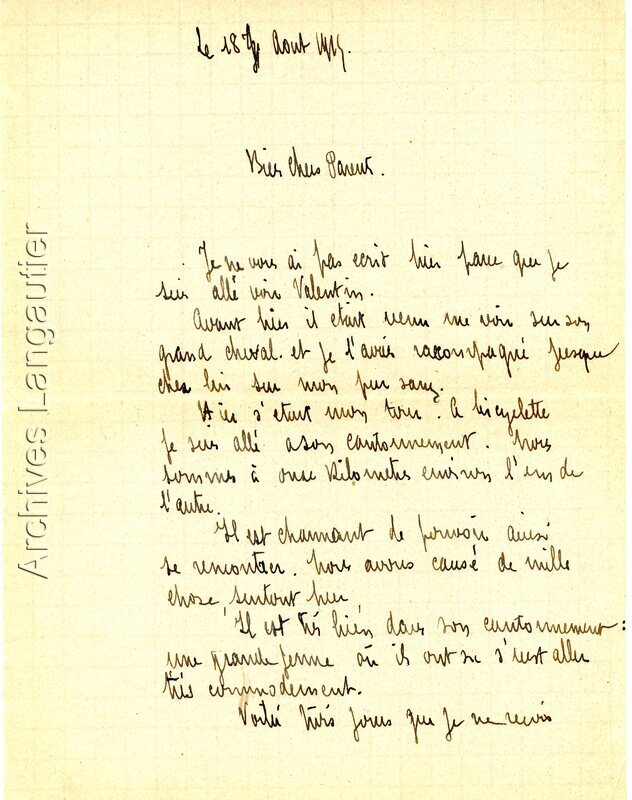 Le 18 Aout 1915.
Bien chers Parent.
Je ne vous ai pas ecrit hier parce que je
suis allé voir Valentin.
Avant hier il etait venu me voir sur son
grand cheval et je l'avais raccompagné jusque
chez lui sur mon pur sang.
Hier s'etait mon tour. A bicyclette
je suis allé a son cantonnement. Nous
sommes à onze Kilometres environ l'un de
l'autre.
Il est charmant de pouvoir ainsi
se rencontrer. Nous avons causé de mille
chose, surtout hier
Il est très bien dans son cantonnement:
une grande ferme où ils ont su s'installer
très commodement.
Voilà trois jours que je ne reçois
Archives Langautier